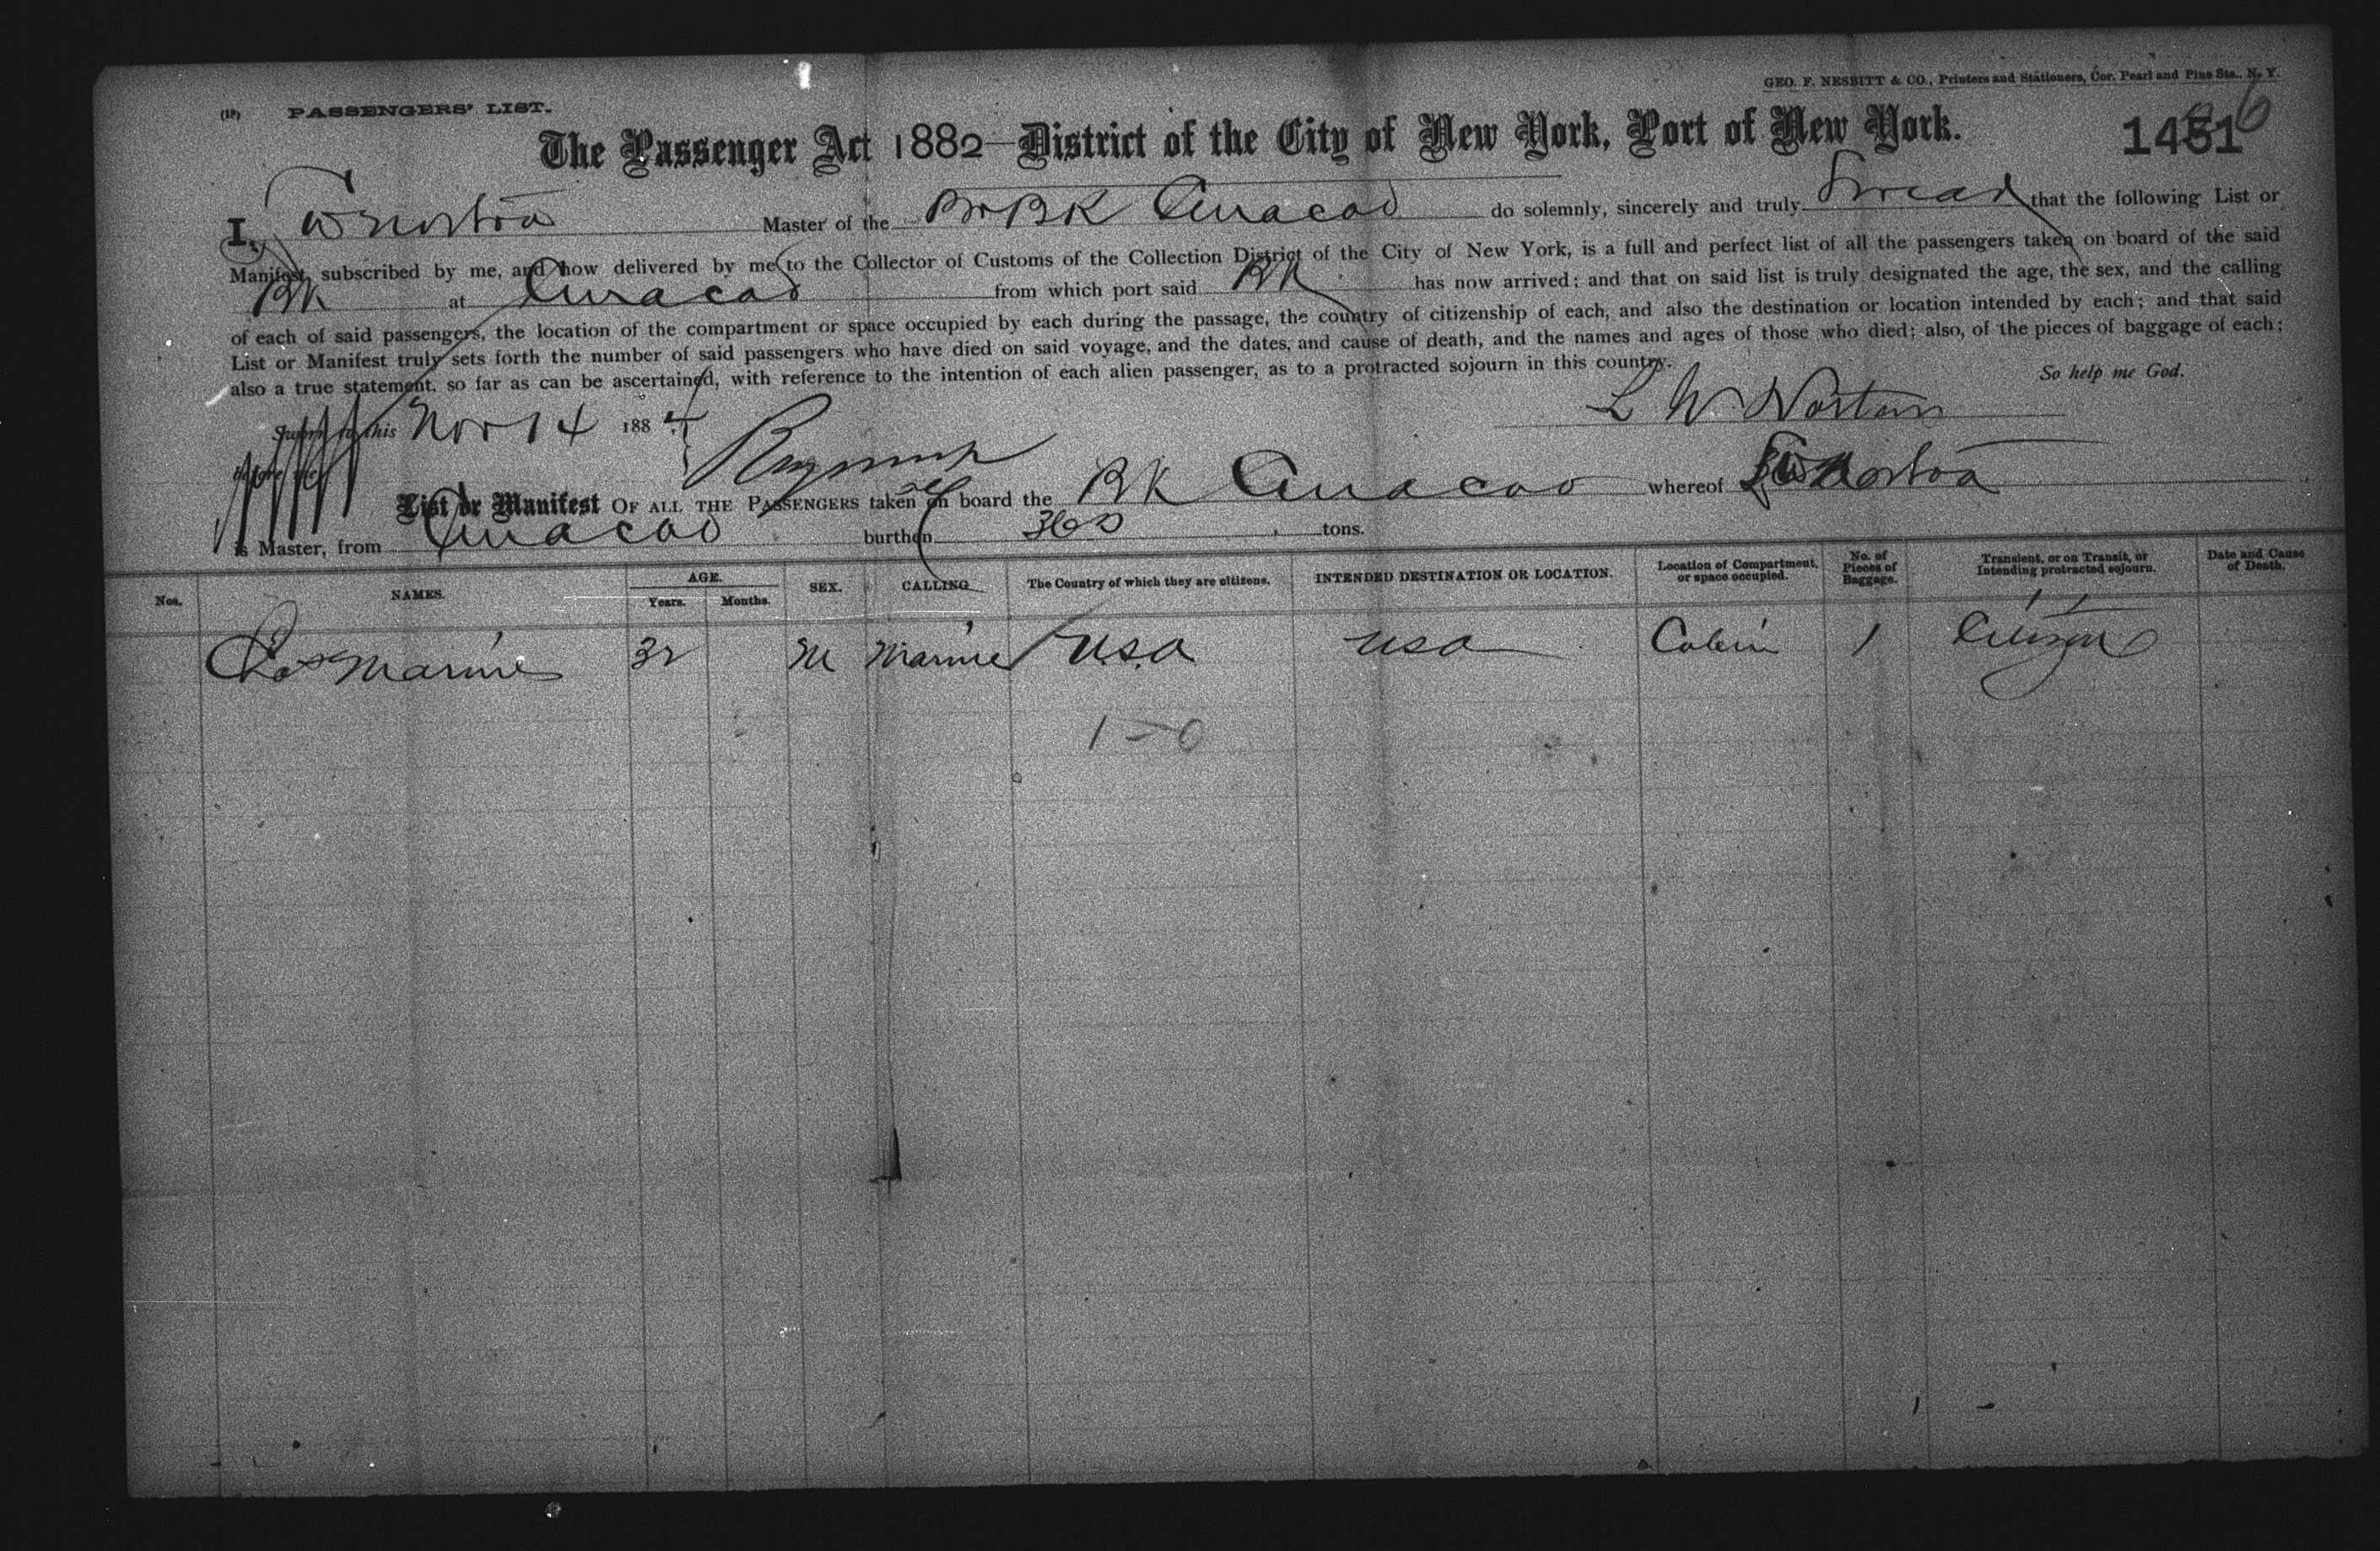 GEO. F. NESBITT & CO., Printers and Stationers, Cor. Pearl and Pine Sts., N. Y.
(18) PASSENGERS' LIST.
The Passenger Act 1882—District of the City of New York, Port of New York. 1451 6
I, L W Norton Master of the Br BK Curacao do solemnly, sincerely and truly Swear that the following List or
Manifest, subscribed by me, and now delivered by me to the Collector of Customs of the Collection District of the City of New York, is a full and perfect list of all the passengers taken on board of the said
BK at Curacao from which port said BK has now arrived; and that on said list is truly designated the age, the sex, and the calling
of each of said passengers, the location of the compartment or space occupied by each during the passage, the country of citizenship of each, and also the destination or location intended by each; and that said
List or Manifest truly sets forth the number of said passengers who have died on said voyage, and the dates, and cause of death, and the names and ages of those who died; also, of the pieces of baggage of each;
also a true statement, so far as can be ascertained, with reference to the intention of each alien passenger, as to a protracted sojourn in this country. So help me God.
Sworn to this Nov 14 1884 L W Norton
before me
List or Manifest OF ALL THE PASSENGERS taken on board the BK Curacao whereof L W Norton
is Master, from Curacao burthen 360 tons.
Nos. NAMES. AGE. Years. Months. SEX. CALLING The Country of which they are citizens. INTENDED DESTINATION OR LOCATION. Location of Compartment, or space occupied. No. of Pieces of Baggage. Transient, or on Transit, or Intending protracted sojourn. Date and Cause of Death.
Marine 32 M Marine U.S.A USA Cabin 1 Citizen
1 - 0